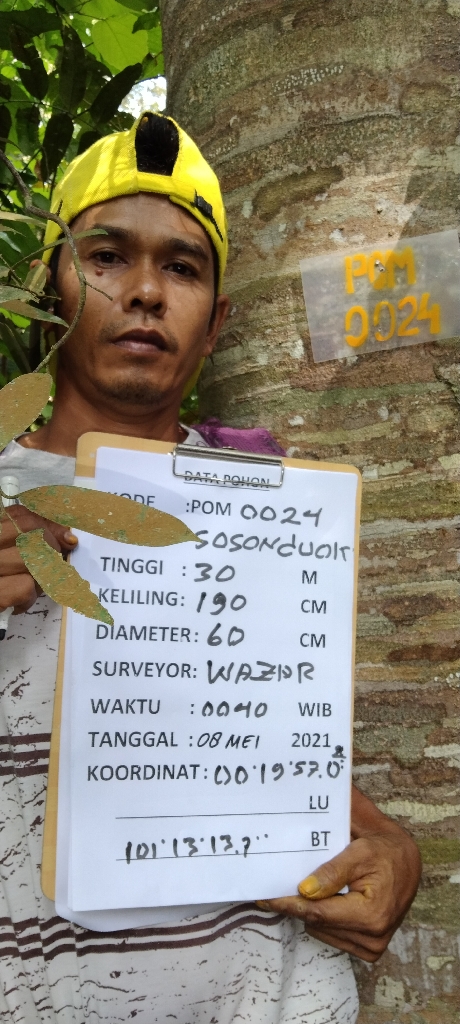 POM
0024
DATA POHON
KODE :POM 0024
TINGGI : 30 M
KELILING: 190 CM
DIAMETER: 60 CM
SURVEYOR: WAZIR
WAKTU : 0040 WIB
TANGGAL : 08 MEI 2021
KOORDINAT: 00°19'57.0"
LU
101°13'13.7" BT